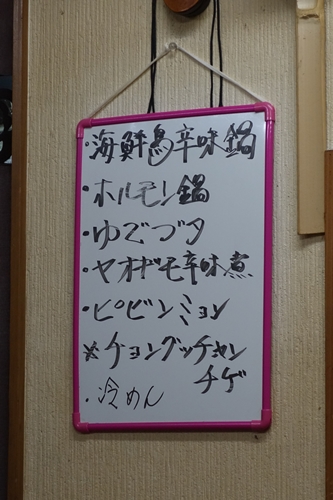 ・海鮮鳥辛味鍋
・ホルモン鍋
・ゆでブタ
・ヤオギモ辛味煮
・ピビンミョン
※チョングッチャン
チゲ
・冷めん